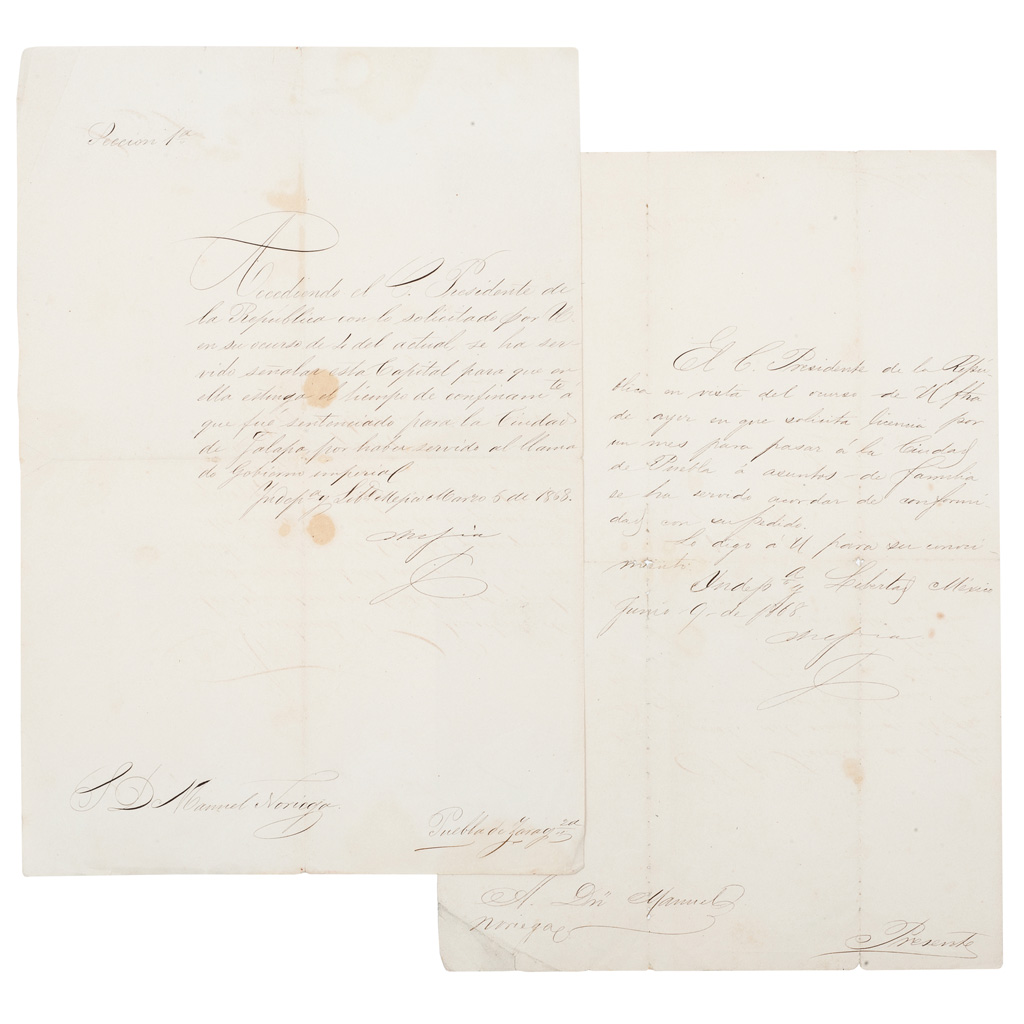 Seccion 1ª
Accediendo el C. Presidente de
la República con lo solicitado por U.
en su ocurso de 4 del actual, se ha ser-
vido señalar esta Capital para que en
ella estinga el tiempo de confinamto á
que fué sentenciado para la Ciudad
de Jalapa por haber servido al llama-
do Gobierno imperial.
Indepa y Libd Mejico Marzo 6 de 1868.
Mejia
S D Manuel Noriega.
Puebla de Zaragza
El C. Presidente de la Repú-
blica en vista del ocurso de U fha
de ayer en que solicita licencia por
un mes para pasar á la Ciudad
de Puebla á asuntos de familia
se ha servido acordar de conformi-
dad con su pedido.
Lo digo á U para su conoci-
miento
Indepa y Libertad México
Junio 9 de 1868
Mejia
A. Dn Manuel
Noriega
Presente